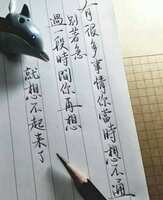 有很多事情你當時想不通
別著急
過一段時間你再想
就想不起來了